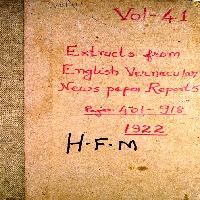 Vol-41
Extracts from
English Vernacular
News paper Reports
Pages 401-918
1922
H.F.M